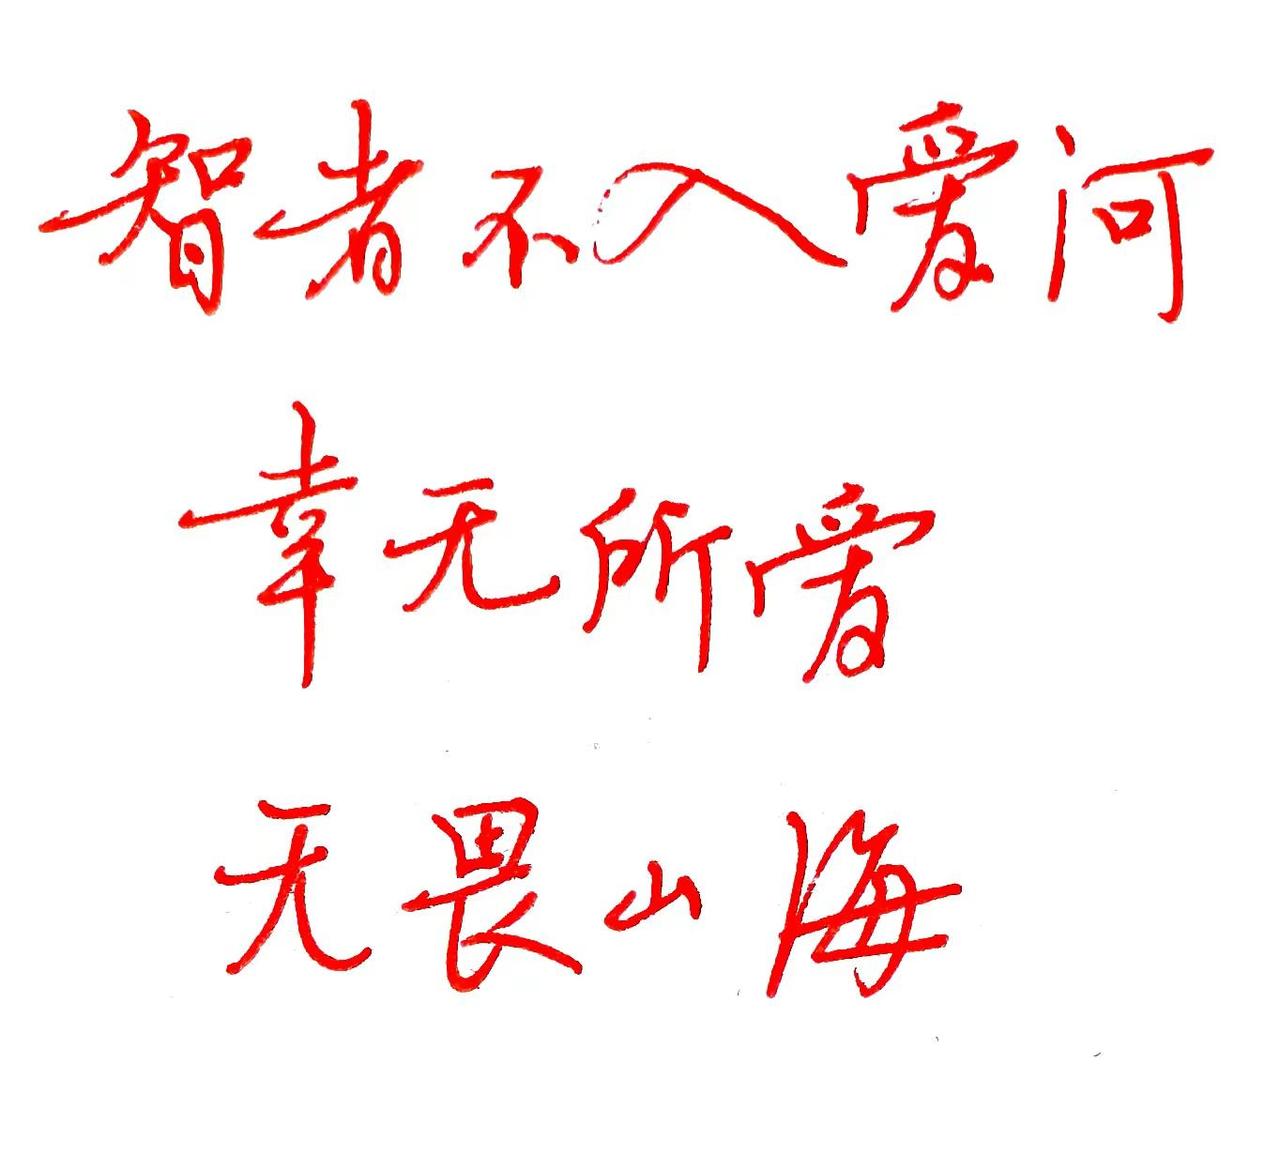 智者不入爱河
幸无所爱
无畏山海